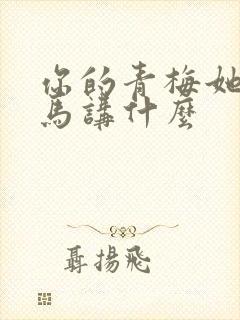 你的青梅她
馬講什麼
聶揚飛